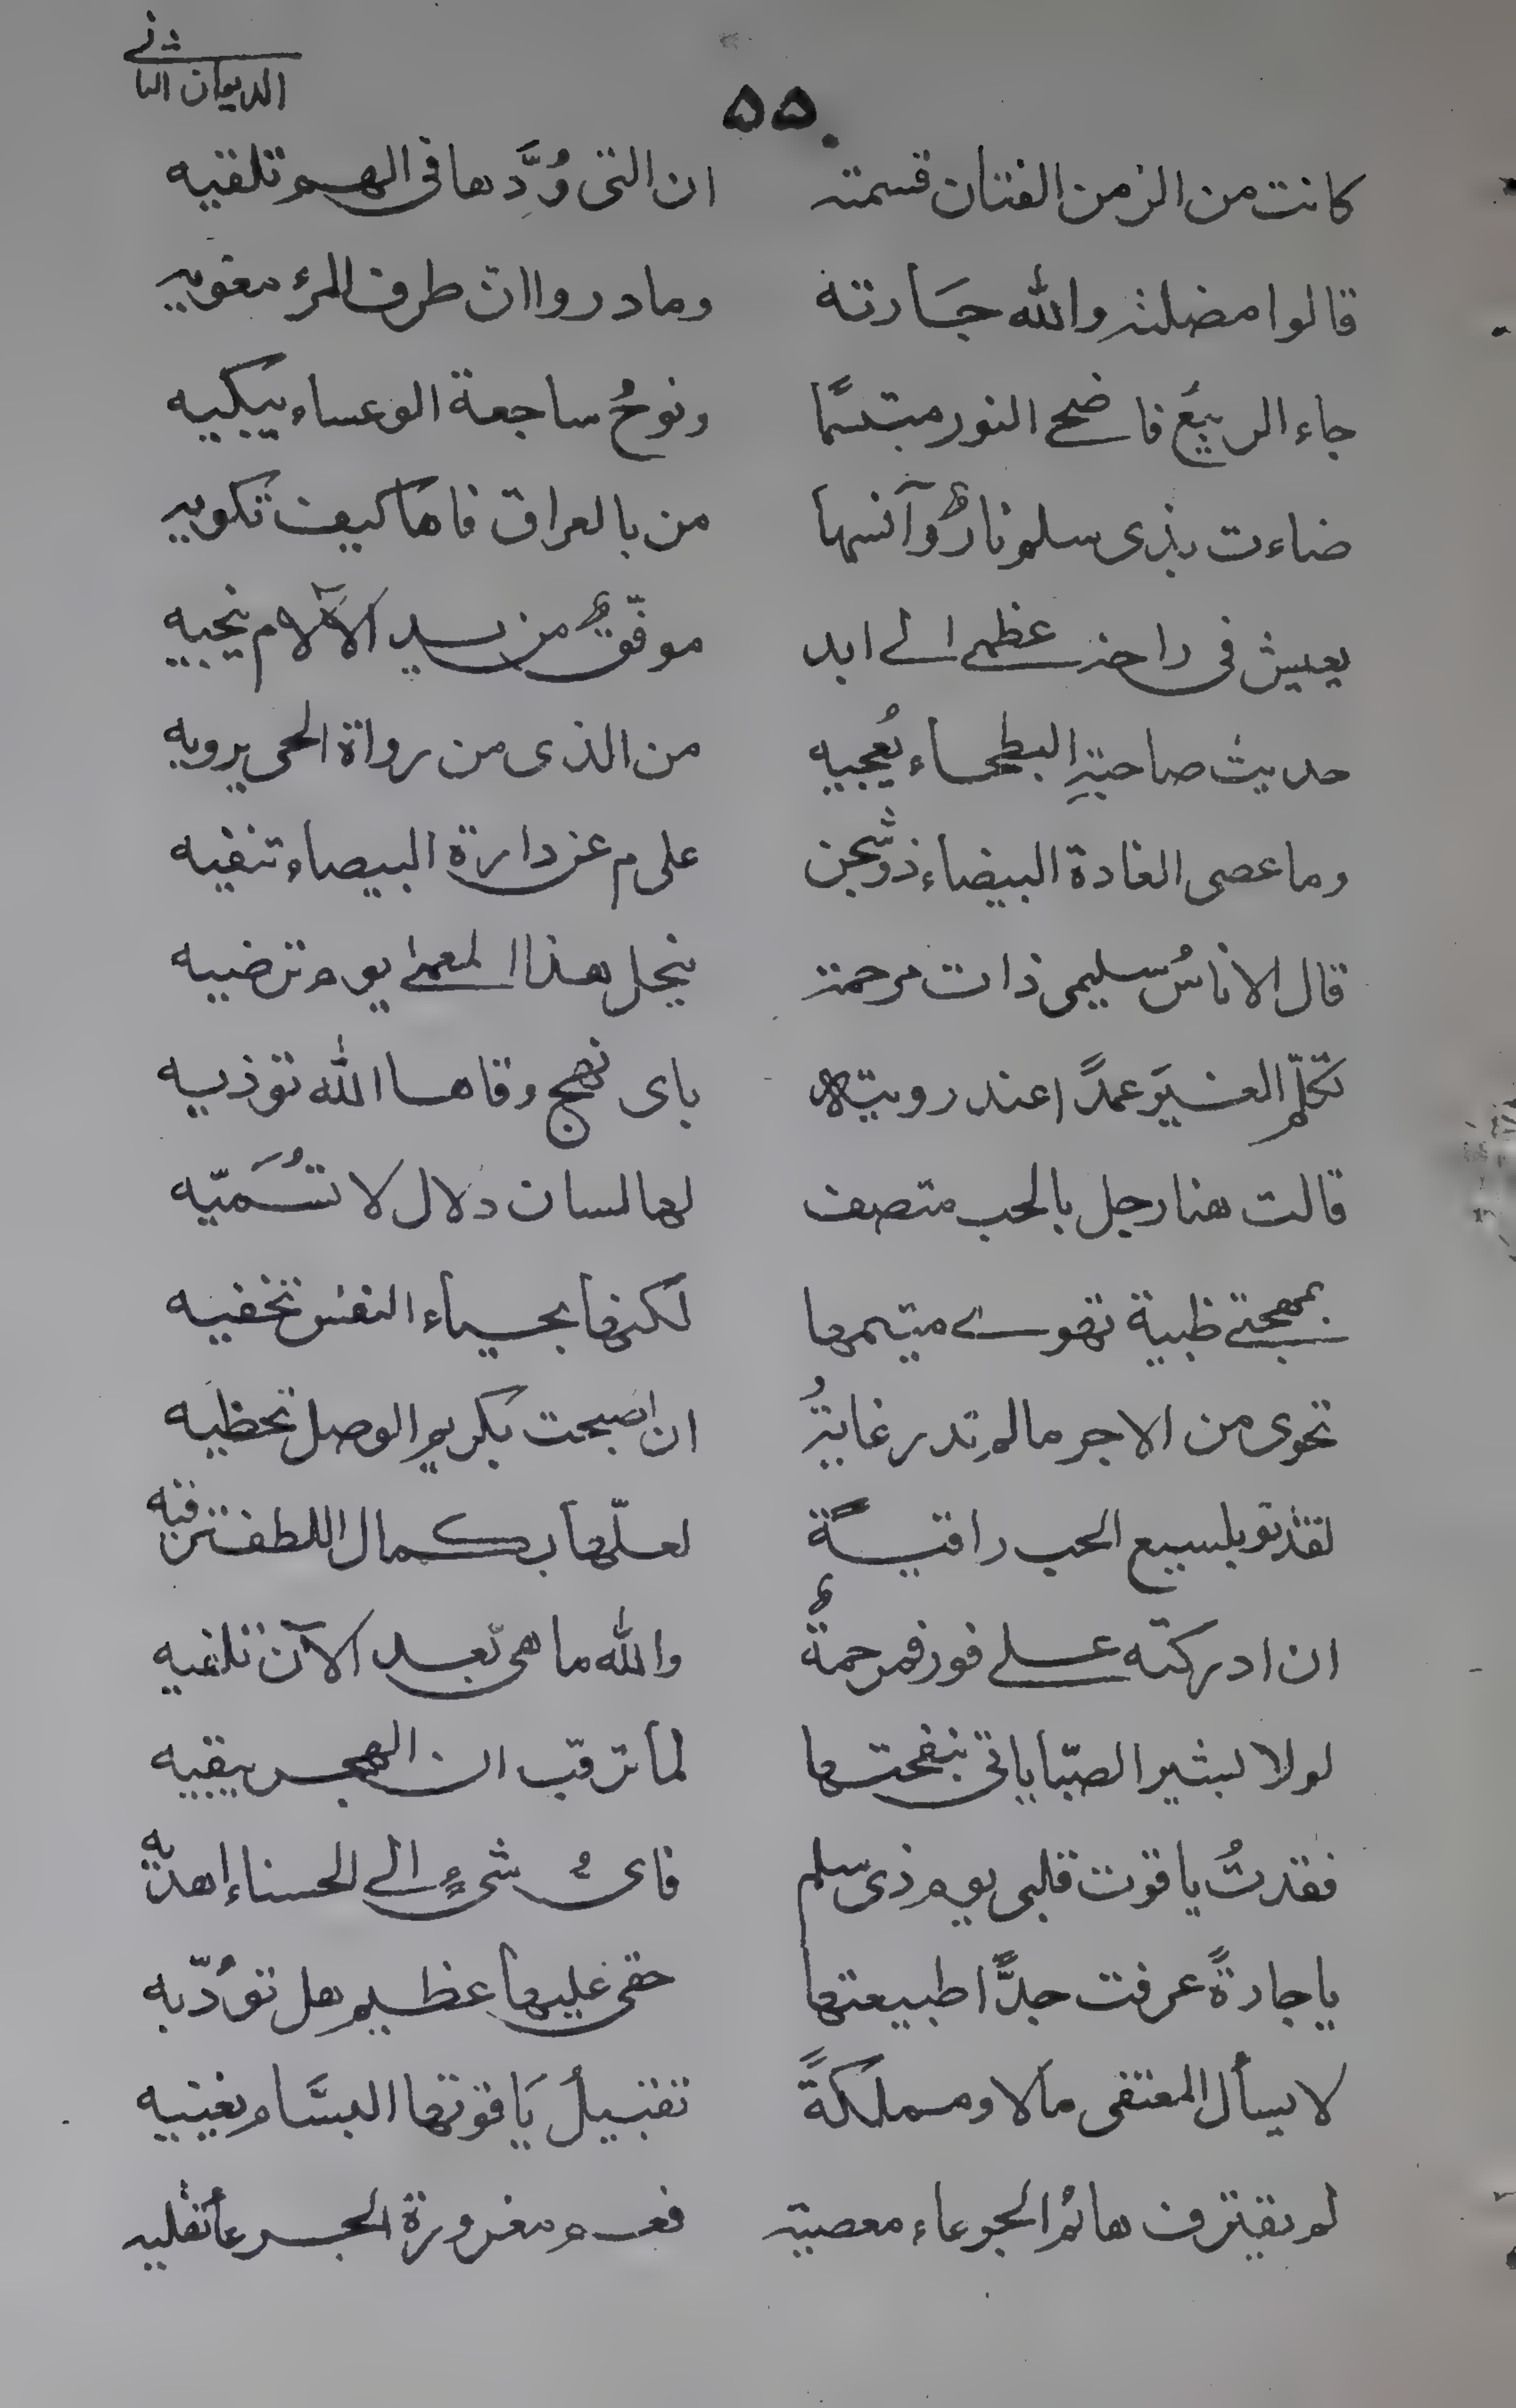 الديوان الثاني
٥٥
كانت من الزمن الفتان قسمته ان التى وُدَّها فى الهم تلقيه
قالوا مضلته والله جَارته وما دروا ان طرف المرء مغويه
جاء الربيعُ فاضحى النور مبتسمًا ونوحُ ساجعة الوعساء يبكيه
ضاءت بذى سلم نارٌ وآنسها من بالعراق فاها كيف تكويه
يعيش فى راحة عظمى الى ابد موفّقٌ من سيد الآلام ينجيه
حديث صاحبةِ البطحاء يُعجبه من الذى من رواة الحى يرويه
وما عصى الغادة البيضاء ذو شجن على م عن دارة البيضاء تنفيه
قال الاناسُ سليمى ذات مرحمة ينحل هذا المعمى يوم ترضيه
تكلّم الغيرَ عمدًا عند رويته باى نهج وقاها الله توذيه
قالت هنا رجل بالحب متصف لها لسان دلال لا تُسَميّه
بمهجتى ظبية تهوى متيمها لكنها بحياء النفس تخفيه
تحوى من الاجر مالم تدر غايةُ ان اصبحت بكريم الوصل تحظيه
لقد تو بلسيع الحب راقيةً لعلّها بكمال اللطف ترقيه
ان ادركته على فور فمرحمةٌ والله ما هى بعد الآن تلغيه
لولا بشير الصبّا ياتى بنفحتها لما ترقب ان الهجر يبقيه
فقدتُ ياقوت قلبى يوم ذى سلم فاىُّ شىءٍ الى الحسناء اهديه
يا جارةً عرفت جدًّا طبيعتها حقى عليها عظيم هل تؤدّيه
لا يسأل المعتفى مالا ومملكةً تقبيلُ يَاقوتها البسَّام يغنيه
لم يقترف هائمُ الجرعاء معصية فعم مغرورة الجرعا تقليه